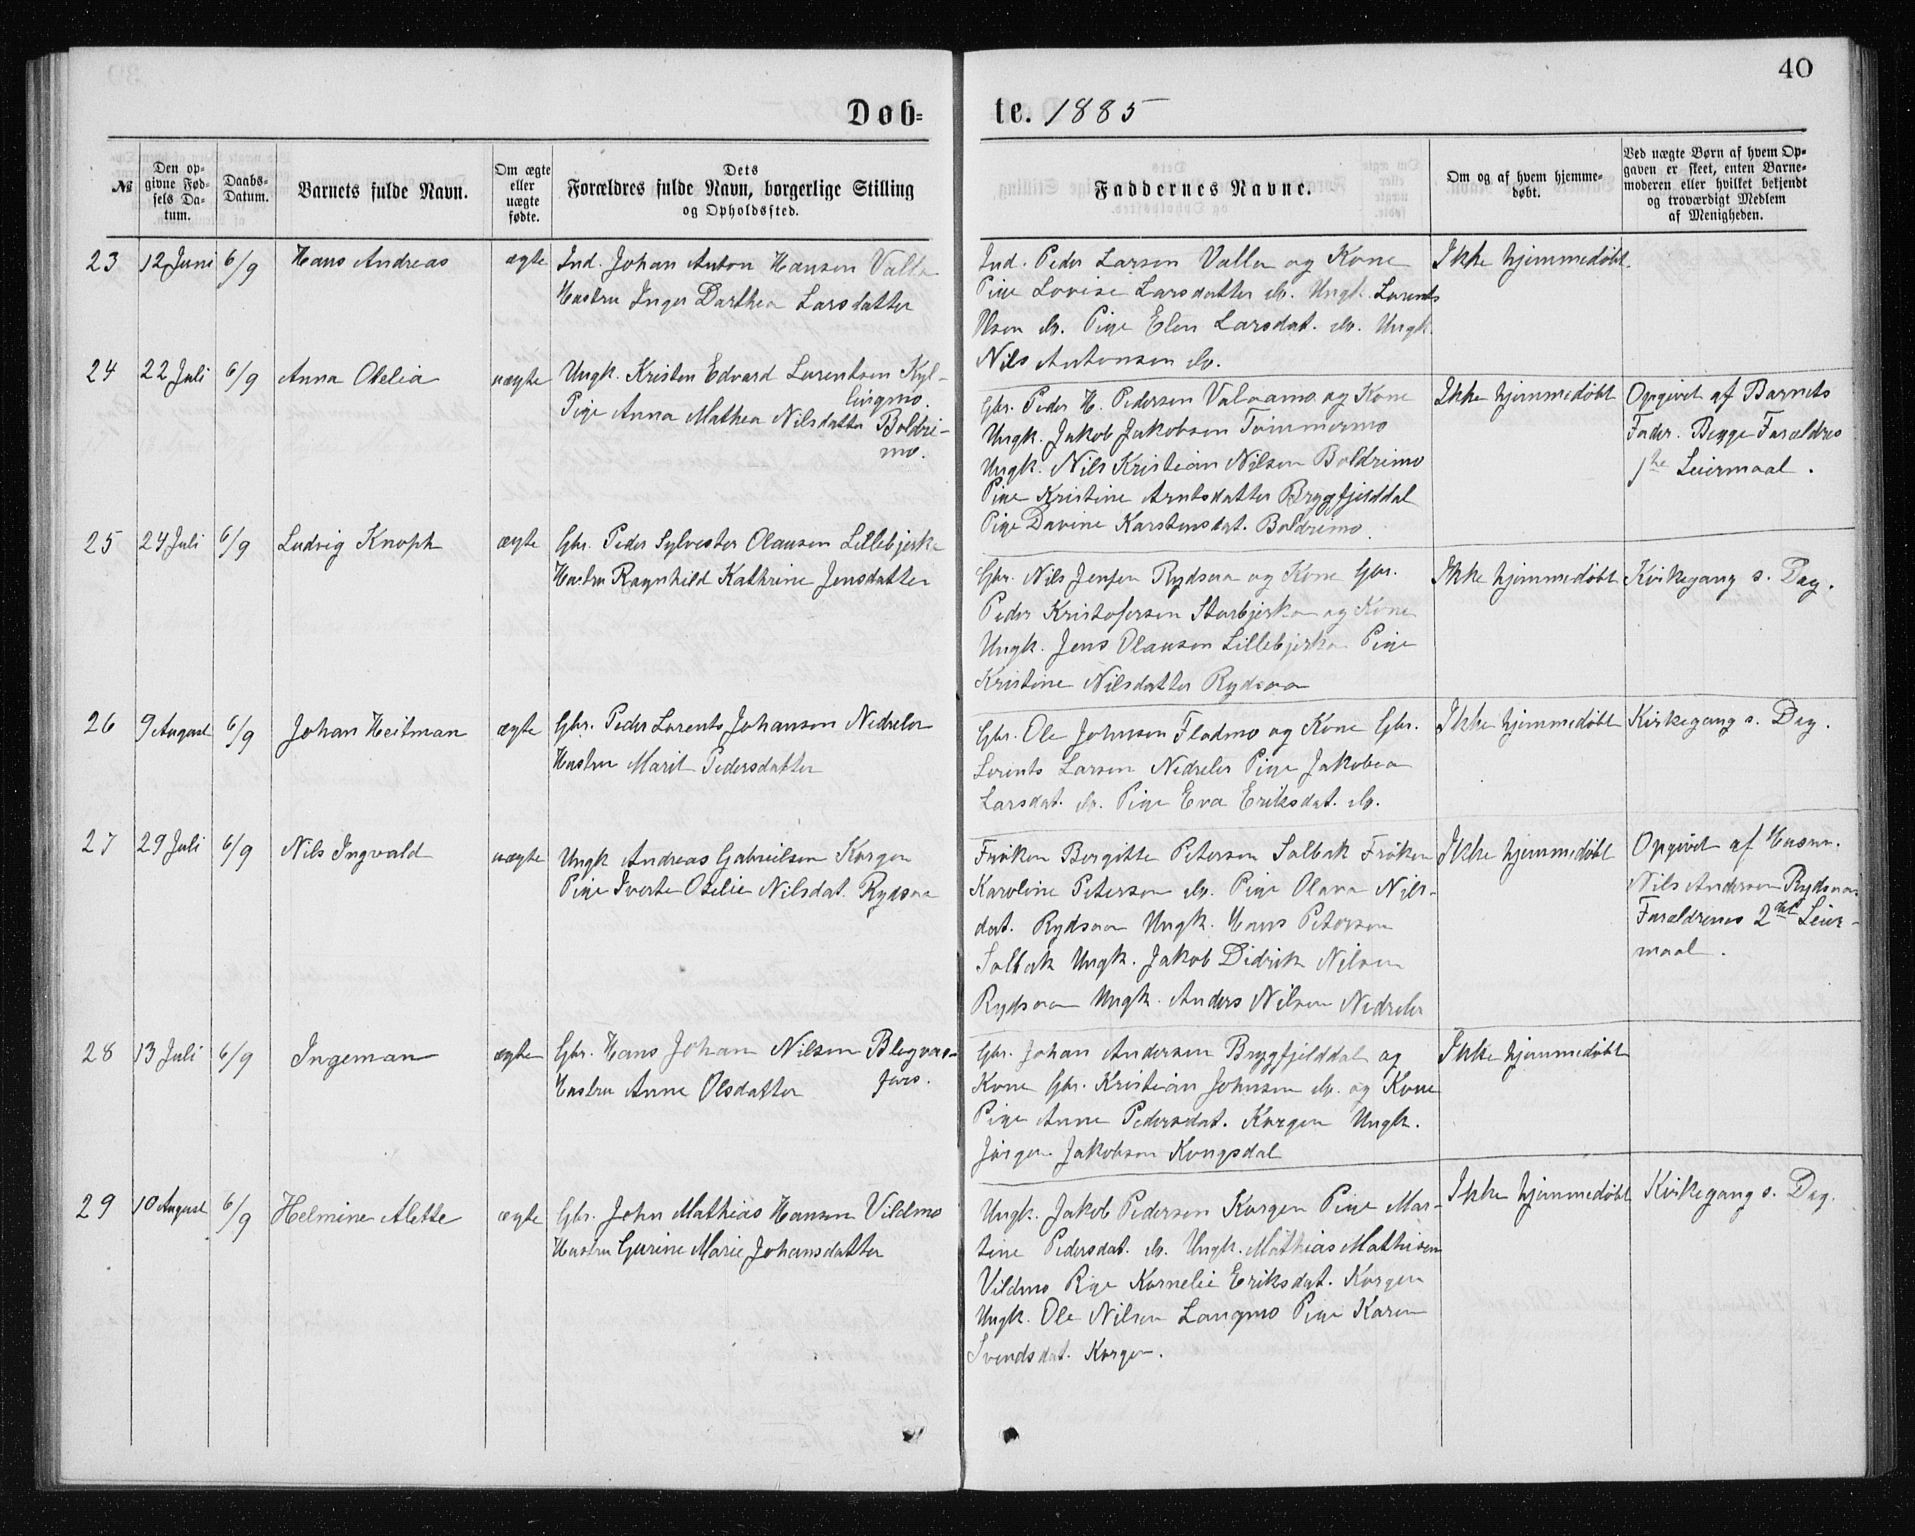 40
Døb=
te. 1885
№
Den op-
givne Fød-
sels Da-
tum.
Daabs-
Datum.
Barnets fulde Navn.
Om ægte
eller
uægte
fødte.
Dets
Forældres fulde Navn, borgerlige Stilling
og Opholdssted.
Faddernes Navne.
Om og af hvem hjemme-
døbt.
Ved uægte Børn af hvem Op-
gaven er skeet, enten Barne-
moderen eller hvilket bekjendt
og troværdigt Medlem
af Menigheden.
23 12 Juni 6/9 Hans Andreas ægte Ind. Johan Anton Hansen Valla
Hustru Inger Darthea Larsdatter
Ind. Peder Larsen Valla og Kone
Pige Lovise Larsdatter do. Ungk. Lorents
Olsen do. Pige Elen Larsdat. do. Ungk.
Nils Antonsen do.
Ikke hjemmedøbt.
24 22 Juli 6/9 Anna Otelia uægte Ungk. Kristen Edvard Lorentsen Kyl-
lingmo.
Pige Anna Mathea Nilsdatter Boldri-
mo.
Gbr. Peder H. Pedersen Valaamo og Kone
Ungk. Jakob Jakobsen Tømmermo
Ungk. Nils Kristian Nilsen Boldrimo
Pige Kristine Arntsdatter Bryggfjelddal
Pige Davine Karstensdat. Boldrimo.
Ikke hjemmedøbt
Opgivet af Barnets
Fader. Begge Forældres
1ste Leiermaal.
25 24 Juli 6/9 Ludvig Knoph ægte Gbr. Peder Sylvester Olausen Lillebjerka
Hustru Ragnhild Kathrine Jensdatter
Gbr. Nils Jensen Rydsaa og Kone Gbr.
Peder Kristofersen Storbjerka og Kone
Ungk. Jens Olausen Lillebjerka Pige
Kristine Nilsdatter Rydsaa
Ikke hjemmedøbt
Kirkegang s. Dag.
26 9 August 6/9 Johan Heitman ægte Gbr. Peder Lorents Johansen Nedreler
Hustru Marit Pedersdatter
Gbr. Ole Johnsen Fladmo og Kone Gbr.
Lorents Larsen Nedreler Pige Jakobea
Larsdat. do. Pige Eva Eriksdat. do.
Ikke hjemmedøbt
Kirkegang s. Dag.
27 29 Juli 6/9 Nils Ingvald uægte Ungk Andreas Gabrielsen Korgen
Pige Iverte Otelie Nilsdat. Rydsaa
Frøken Borgitte Peterson Solbak Frøken
Karoline Peterson do. Pige Olava Nils-
dat. Rydsaa Ungk. Hans Peterson
Solbak Ungk. Jakob Didrik Nilsen
Rydsaa Ungk. Anders Nilsen Nedreler
Ikke hjemmedøbt
Opgivet af Husm.
Nils Andersen Rydsaa.
Forældrenes 2det Leier-
maal.
28 13 Juli 6/9 Ingeman ægte Gbr. Hans Johan Nilsen Blegvas-
fors.
Hustru Anne Olsdatter
Gbr. Johan Andersen Bryggfjelddal og
Kone Gbr. Kristian Johnsen do. og Kone
Pige Anne Pedersdat. Korgen Ungk.
Jørgen Jakobsen Kongsdal
Ikke hjemmedøbt
29 10 August 6/9 Helmine Alette ægte Gbr. John Mathias Hansen Vildmo
Hustru Gurine Marie Johansdatter
Ungk. Jakob Pedersen Korgen Pige Mar-
tine Pedersdat. do. Ungk. Mathias Mathisen
Vildmo Pige Kornelie Eriksdat. Korgen
Ungk. Ole Nilsen Langmo Pige Karen
Svendsdat. Korgen.
Ikke hjemmedøbt
Kirkegang s. Dag.